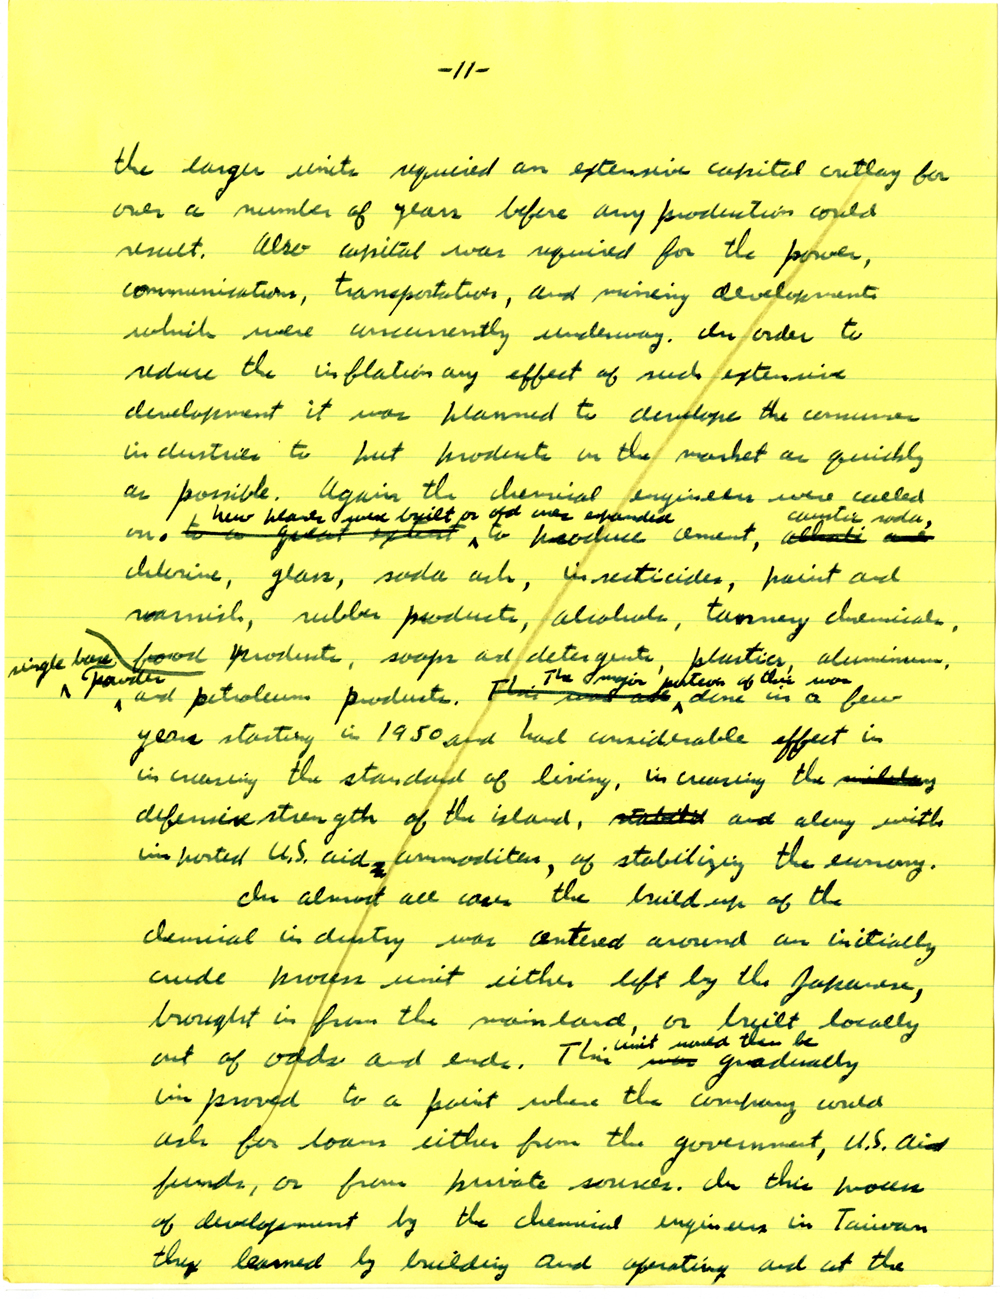 -11-
the larger units required an extensive capital outlay for
over a number of years before any production could
result. Also capital was required for the power,
communications, transportation, and mining developments
which were concurrently underway. In order to
reduce the inflationary effect of such extensive
development it was planned to develope the consumer
industries to put products on the market as quickly
as possible. Again the chemical engineers were called
new plants were built or old ones expanded caustic soda,
on. to a great extent to produce cement, alkali and
chlorine, glass, soda ash, insecticides, paint and
varnish, rubber products, alcohols, tannery chemicals,
single base powder food products, soaps and detergents, plastics, aluminum,
The major portion of this was
and petroleum products. This was all done in a few
years starting in 1950 and had considerable effect in
increasing the standard of living, increasing the military
defensive strength of the island, and along with
imported U.S. aid commodities, of stabilizing the economy.
In almost all cases the build up of the
chemical industry was centered around an initially
crude process unit either left by the Japanese,
brought in from the mainland, or built locally
unit would then be
out of odds and ends. This was gradually
improved to a point where the company could
ask for loans either from the government, U.S. aid
funds, or from private sources. In this process
of development by the chemical engineers in Taiwan
they learned by building and operating and at the